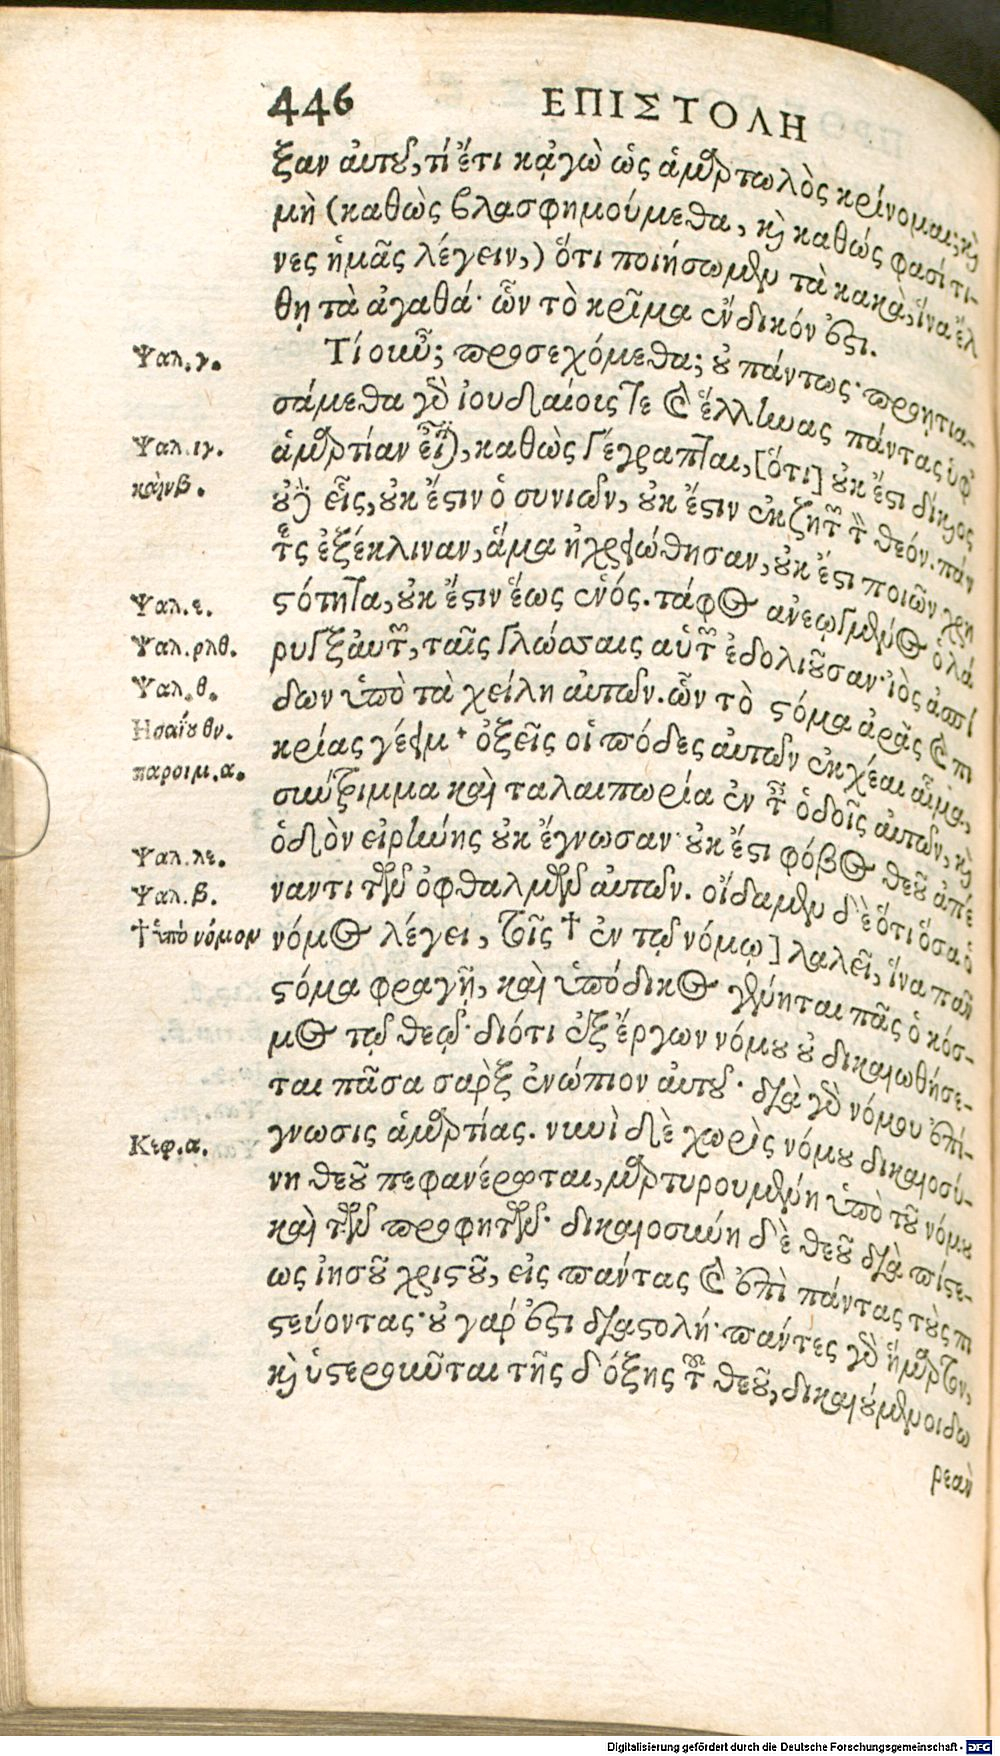 446 ΕΠΙΣΤΟΛΗ
ξαν αὐτοῦ, τί ἔτι κᾀγὼ ὡς ἁμαρτωλὸς κρίνομαι; καὶ
μὴ (καθὼς βλασφημούμεθα, καὶ καθώς φασί τι-
νες ἡμᾶς λέγειν,) ὅτι ποιήσωμεν τὰ κακὰ, ἵνα ἔλ
θῃ τὰ ἀγαθά· ὧν τὸ κρῖμα ἔνδικόν ἐστι.
Ψαλ.γ. Τί οὖν; προσεχόμεθα; οὐ πάντως· προῃτια-
σάμεθα γὰρ ἰουδαίοις τε καὶ ἕλληνας πάντας ὑφ'
Ψαλ.ιγ. ἁμαρτίαν εἶναι, καθὼς γέγραπται, [ὅτι] οὐκ ἔστι δίκαιος
καὶ νβ. οὐδὲ εἷς, οὐκ ἔστιν ὁ συνιῶν, οὐκ ἔστιν ἐκζητῶν τὸν θεόν. πάν
τες ἐξέκλιναν, ἅμα ἠχρειώθησαν, οὐκ ἔστι ποιῶν χρη
Ψαλ.ε. στότητα, οὐκ ἔστιν ἕως ἑνός. τάφος ἀνεῳγμένος ὁ λά
Ψαλ.ρλθ. ρυγξ αὐτῶν, ταῖς γλώσσαις αὑτῶν ἐδολιοῦσαν· ἰὸς ἀσπί
Ψαλ.θ. δων ὑπὸ τὰ χείλη αὐτῶν. ὧν τὸ στόμα ἀρᾶς καὶ πι
Ησαΐου θν. κρίας γέμει· ὀξεῖς οἱ πόδες αὐτῶν ἐκχέαι αἷμα,
παροιμ.α. σύντριμμα καὶ ταλαιπωρία ἐν ταῖς ὁδοῖς αὐτῶν, καὶ
ὁδὸν εἰρήνης οὐκ ἔγνωσαν· οὐκ ἔστι φόβος θεοῦ ἀπέ
Ψαλ.λε. ναντι τῶν ὀφθαλμῶν αὐτῶν. οἴδαμεν δὲ ὅτι ὅσα ὁ
Ψαλ.β.
† ὑπὸ νόμον νόμος λέγει, τοῖς † ἐν τῳ νόμῳ] λαλεῖ, ἵνα πᾶν
στόμα φραγῇ, καὶ ὑπόδικος γένηται πᾶς ὁ κόσ-
μος τῷ θεῷ· διότι ἐξ ἔργων νόμου οὐ δικαιωθήσε-
ται πᾶσα σαρξ ἐνώπιον αὐτοῦ· διὰ γὰρ νόμου ἐπί-
Κεφ.α. γνωσις ἁμαρτίας. νυνὶ δὲ χωρὶς νόμου δικαιοσύ-
νη θεοῦ πεφανέρωται, μαρτυρουμένη ὑπὸ τοῦ νόμου
καὶ τῶν προφητῶν· δικαιοσύνη δὲ θεοῦ διὰ πίστε-
ως ἰησοῦ χριστοῦ, εἰς πάντας καὶ ἐπὶ πάντας τοὺς πι
στεύοντας· οὐ γάρ ἐστι διαστολή· πάντες γὰρ ἥμαρτον,
καὶ ὑστεροῦνται τῆς δόξης τοῦ θεοῦ, δικαιούμενοι δω
ρεὰν